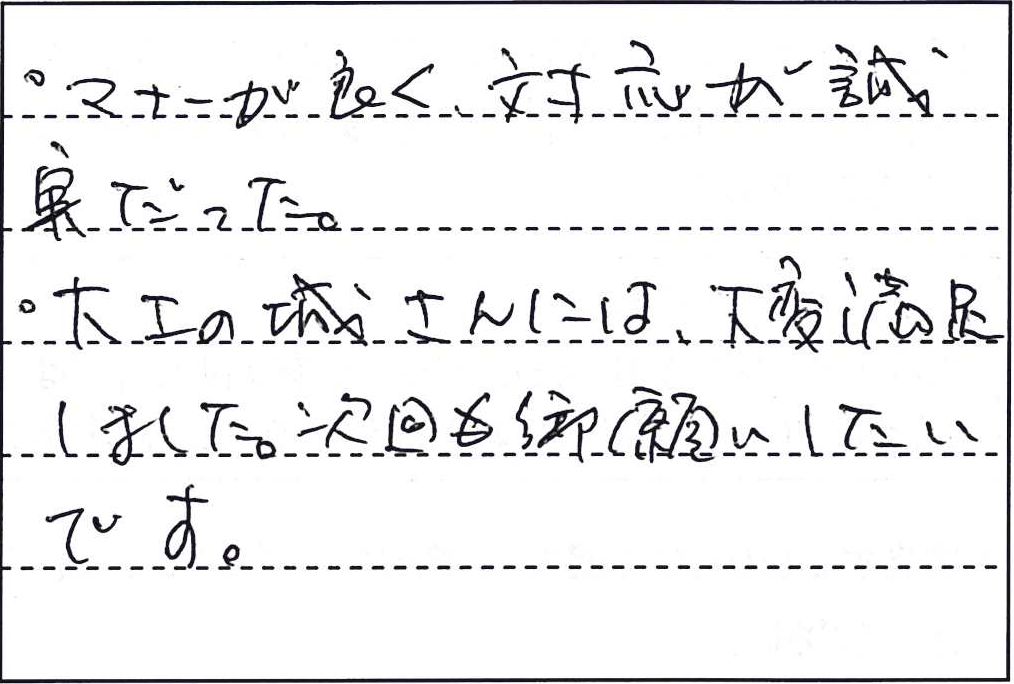 。マナーが良く、対応が誠
実だった。
。大工の城さんには、大変満足
しました。次回も御願いしたい
です。